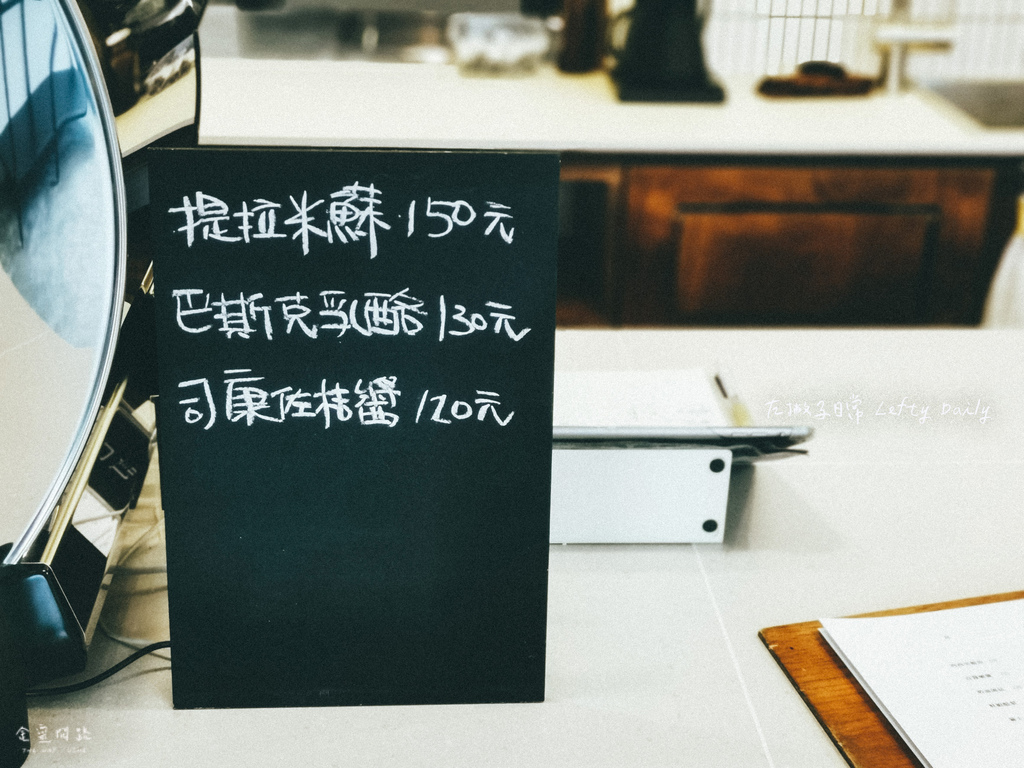 提拉米蘇 150元
巴斯克乳酪 130元
司康佐桔醬 120元
左撇子日常 Lefty Daily